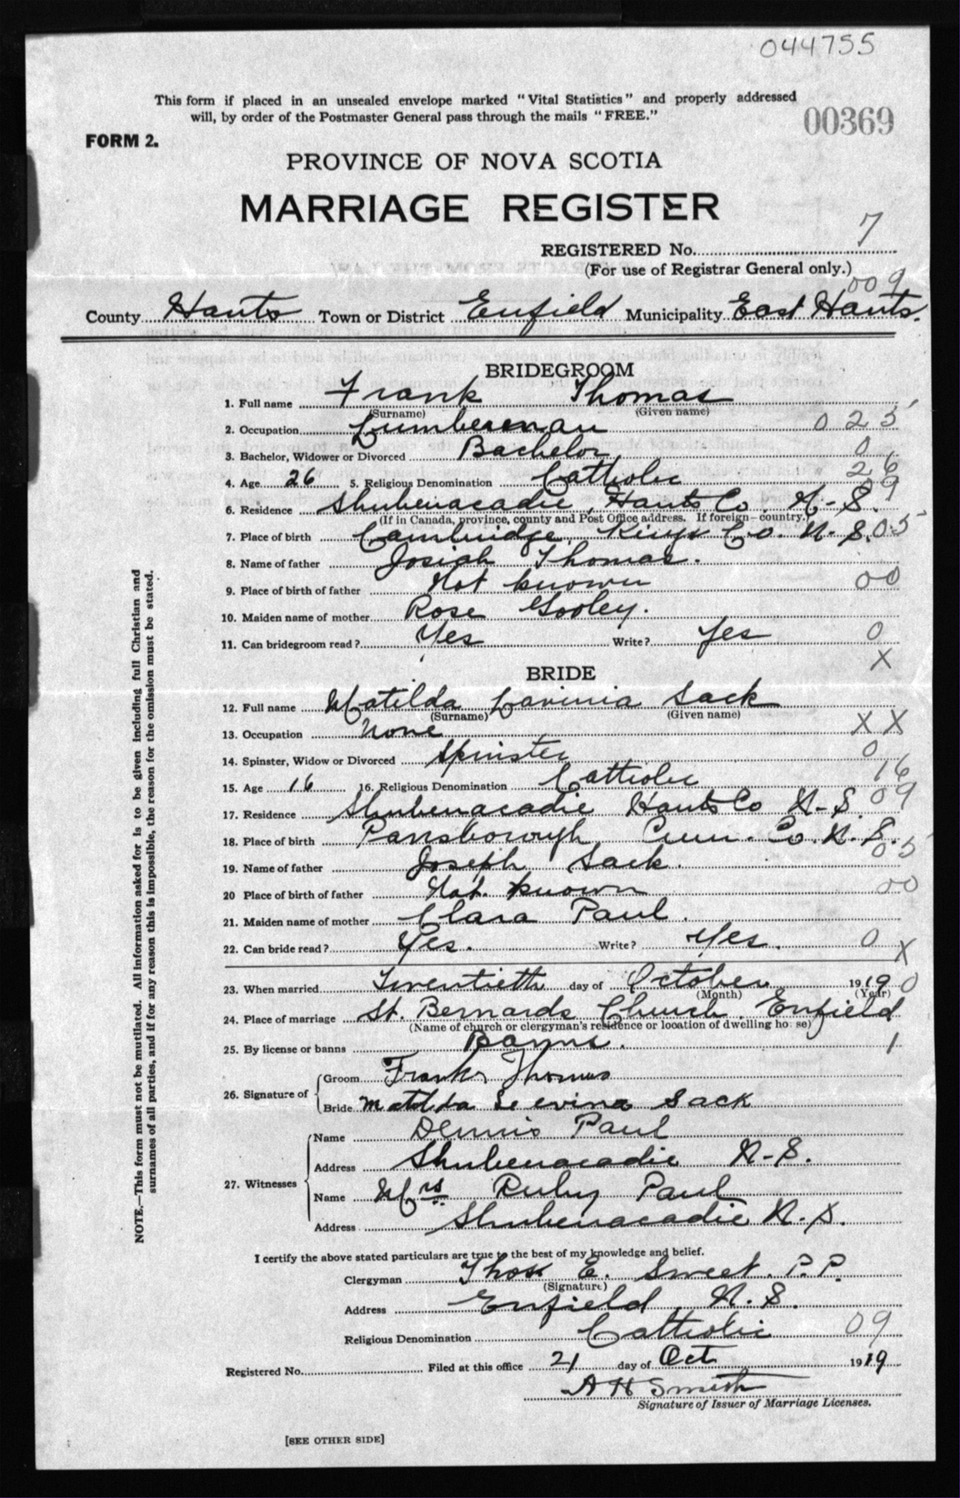 044755
This form if placed in an unsealed envelope marked "Vital Statistics" and properly addressed
will, by order of the Postmaster General pass through the mails "FREE."
00369
FORM 2.
PROVINCE OF NOVA SCOTIA
MARRIAGE REGISTER
REGISTERED No. 7
(For use of Registrar General only.)
009
County Hants Town or District Enfield Municipality East Hants.
BRIDEGROOM
1. Full name Frank Thomas
(Surname) (Given name)
2. Occupation Lumberman 025
3. Bachelor, Widower or Divorced Bachelor 0
4. Age 26 5. Religious Denomination Catholic 26
09
6. Residence Shubenacadie, Hants Co. N-S.
(If in Canada, province, county and Post Office address. If foreign—country.)
7. Place of birth Cambridge, Kings Co. N.S. 05
8. Name of father Josiah Thomas.
9. Place of birth of father Not known 00
10. Maiden name of mother Rose Gooley.
11. Can bridegroom read? Yes Write? Yes 0
X
BRIDE
12. Full name Matilda Lavinia Sack
(Surname) (Given name)
13. Occupation None XX
14. Spinster, Widow or Divorced Spinster 0
15. Age 16 16. Religious Denomination Catholic 16
17. Residence Shubenacadie Hants Co N-S. 09
18. Place of birth Parrsborough Cum. Co. N.S.
05
19. Name of father Joseph Sack.
20 Place of birth of father Not. known 00
21. Maiden name of mother Clara Paul.
22. Can bride read? Yes. Write? Yes. 0
X
23. When married Twentieth day of October 1919 0
(Month) (Year)
24. Place of marriage St. Bernards Church Enfield
(Name of church or clergyman's residence or location of dwelling house)
25. By license or banns Banns. 1
26. Signature of Groom Frank Thomas
Bride Matilda Levina Sack
27. Witnesses Name Dennis Paul
Address Shubenacadie N-S.
Name Mrs Ruby Paul
Address Shubenacadie N.S.
I certify the above stated particulars are true to the best of my knowledge and belief.
Clergyman Thos E. Sweet. P.P.
(Signature)
Address Enfield, N.S.
Religious Denomination Catholic 09
Registered No. Filed at this office 21 day of Oct 1919
A H Smith
Signature of Issuer of Marriage Licenses.
[SEE OTHER SIDE]
NOTE.—This form must not be mutilated. All information asked for is to be given including full Christian and
surnames of all parties, and if for any reason this is impossible, the reason for the omission must be stated.